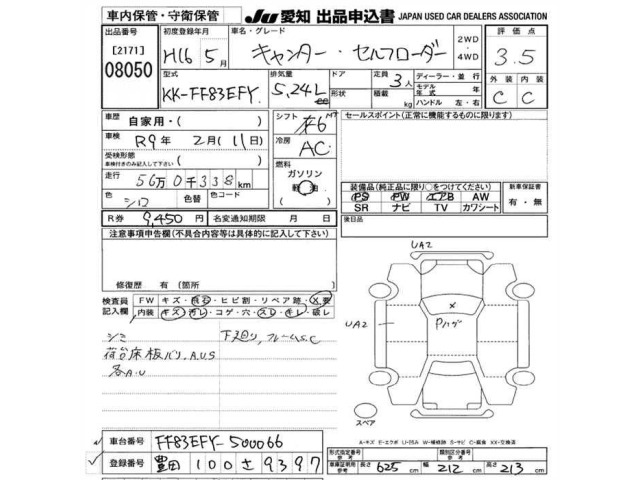 車内保管・守衛保管 JU 愛知 出品申込書 JAPAN USED CAR DEALERS ASSOCIATION
出品番号 初度登録年月 車名・グレード 2WD・4WD 評価点
[2171] H16 5月 キャンター・セルフローダー 3.5
08050
型式 排気量 ドア 定員 3人 ディーラー・並行 外装 内装
KK-FF83EFY. 5.24L cc 形状 積載 kg モデル年式 年 C C
ハンドル 左・右
車歴 自家用・( ) シフト 6 MT セールスポイント(正常に機能するものに限ります)
車検 R9年 2月(11日) 冷房 AC
受検形態 車検付きのみ記入して下さい 燃料
走行 56万0千338km ガソリン
色 シロ 色替 色コード 軽油 装備品(純正品に限り○をつけてください) 新車保証書
PS PW エアB AW 有・無
R券 9,450円 名変通知期限 月 日 SR ナビ TV カワシート
注意事項申告欄(不具合内容等は具体的に記入して下さい) 後日品
UA2
修復歴 有 (箇所
検査員記入欄 FW キズ・飛石・ヒビ割・リペア跡・X要
内装 キズ・汚レ・コゲ・穴・スレ・キレ・破レ
UA2 X Pハゲ
シミ 下廻り,フレームS.C
荷台床板バリ.A.U.S
各A.U
スペア
A-キズ E-エクボ U-凹み W-補修跡 S-サビ C-腐食 XX-交換済
車台番号 FF83EFY-500066 形式指定番号 参考 類別区分番号 参考
登録番号 豊田 100 さ 9397 車庫証明用 参考 長さ 625 cm 幅 212 cm 高さ 213 cm